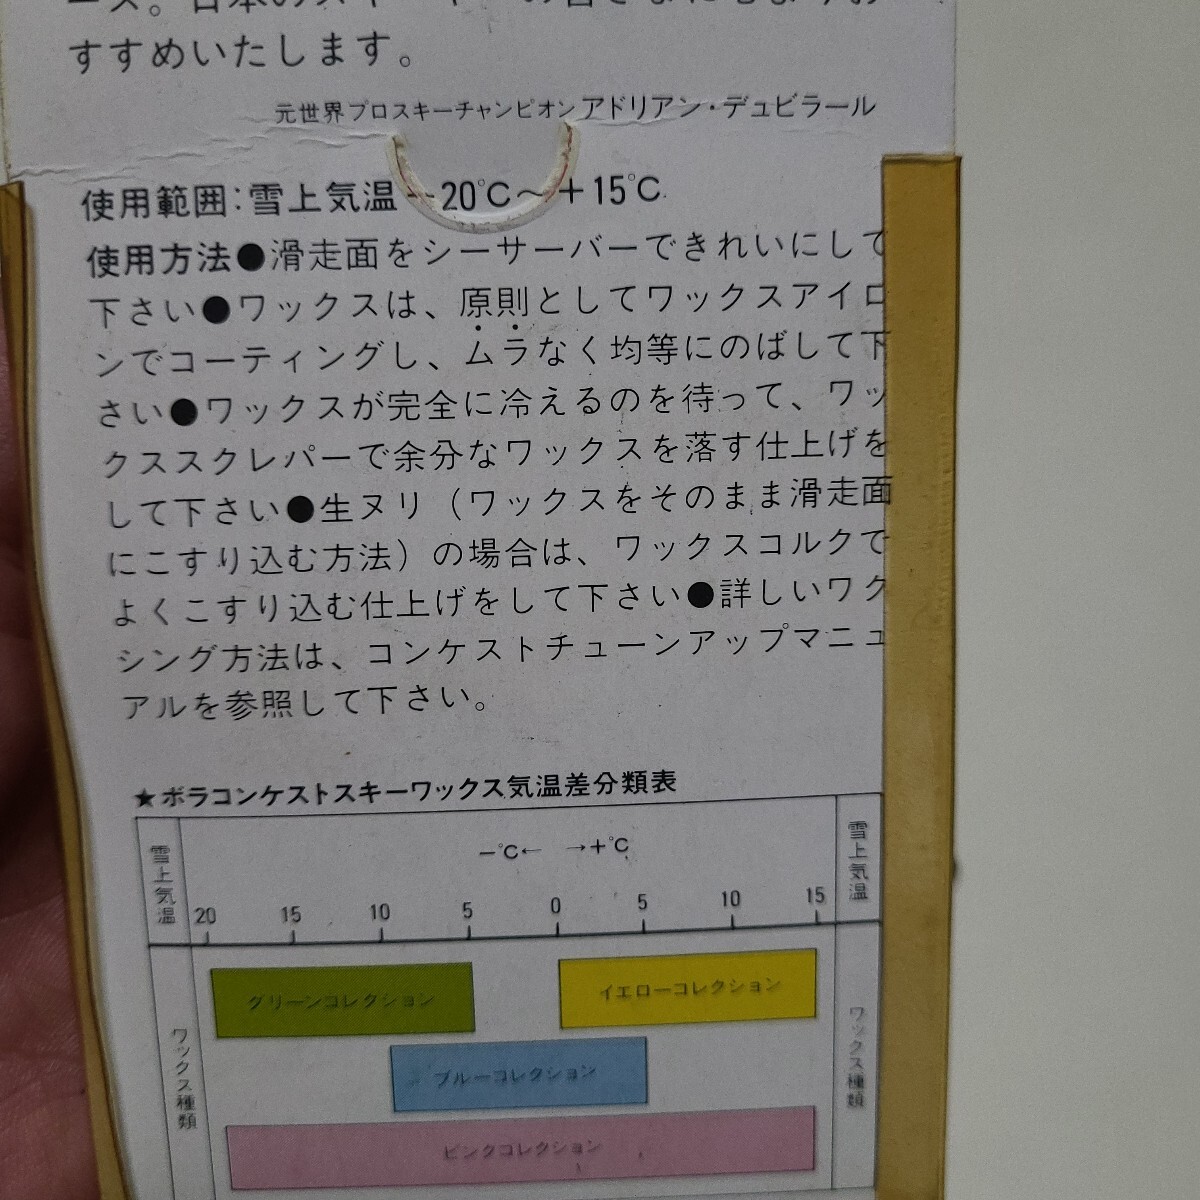 すすめいたします。
元世界プロスキーチャンピオンアドリアン・デュビラール
使用範囲:雪上気温-20℃〜+15℃
使用方法●滑走面をシーサーバーできれいにして
下さい●ワックスは、原則としてワックスアイロ
ンでコーティングし、ムラなく均等にのばして下
さい●ワックスが完全に冷えるのを待って、ワッ
クススクレパーで余分なワックスを落す仕上げを
して下さい●生ヌリ（ワックスをそのまま滑走面
にこすり込む方法）の場合は、ワックスコルクで
よくこすり込む仕上げをして下さい●詳しいワク
シング方法は、コンケストチューンアップマニュ
アルを参照して下さい。
★ボラコンケストスキーワックス気温差分類表
雪上気温
−℃← →+℃
雪上気温
20 15 10 5 0 5 10 15
ワックス種類
グリーンコレクション
イエローコレクション
ブルーコレクション
ピンクコレクション
ワックス種類